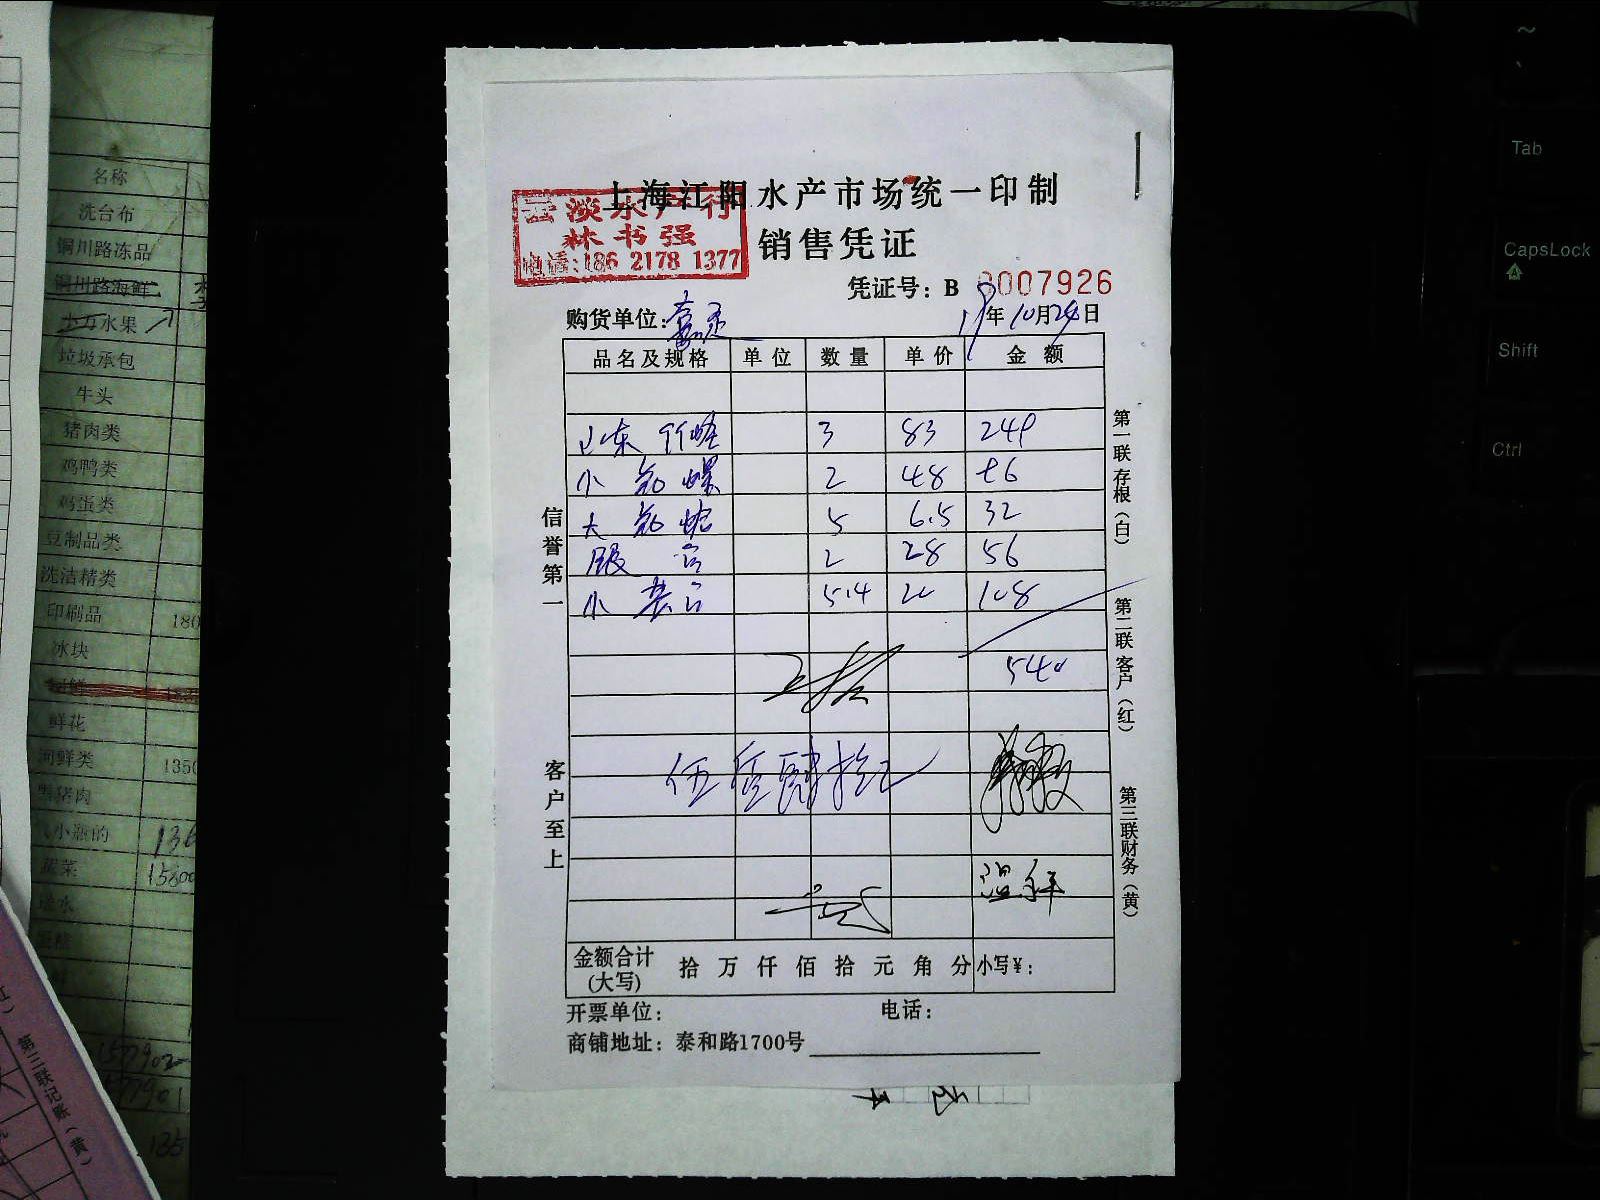 上海江阳水产市场统一印制
云淡水产行
林书强
电话:186 2178 1377
销售凭证
凭证号: B 0007926
购货单位:
19年10月24日
品名及规格 单位 数量 单价 金额
山东 竹蛏 3 83 249
小 花 螺 2 48 96
大 花 蛤 5 6.5 32
2 28 56
小 5.4 20 108
540
伍佰肆拾元
金额合计(大写) 拾 万 仟 佰 拾 元 角 分 小写¥:
开票单位: 电话:
商铺地址: 泰和路1700号
信誉第一
客户至上
第一联 存根(白)
第二联 客户(红)
第三联 财务(黄)
名称
洗台布
铜川路冻品
铜川路海鲜
水果
垃圾承包
牛头
猪肉类
鸡鸭类
鸡蛋类
豆制品类
洗洁精类
印刷品 180
冰块
鲜花
河鲜类 1350
黑猪肉
小瓶的 136
蔬菜 15800
1577902
77901
135
第三联 记账(黄)
~
Tab
CapsLock
A
Shift
Ctrl